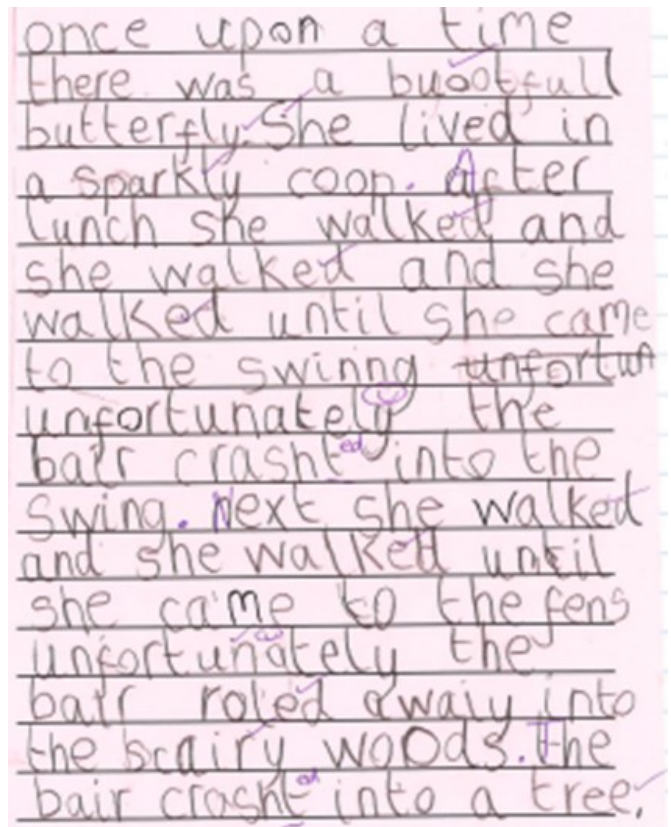 once upon a time
there was a buootfull
butterfly. She lived in
a sparkly coop. After
lunch she walked and
she walked and she
walked until she came
to the swinng unfortun
unfortunately the
bair crasht ed into the
swing. Next she walked
and she walked until
she came to the fens
unfortunately the
bair roled awaiy into
the scairy woods. The
bair crasht ed into a tree.